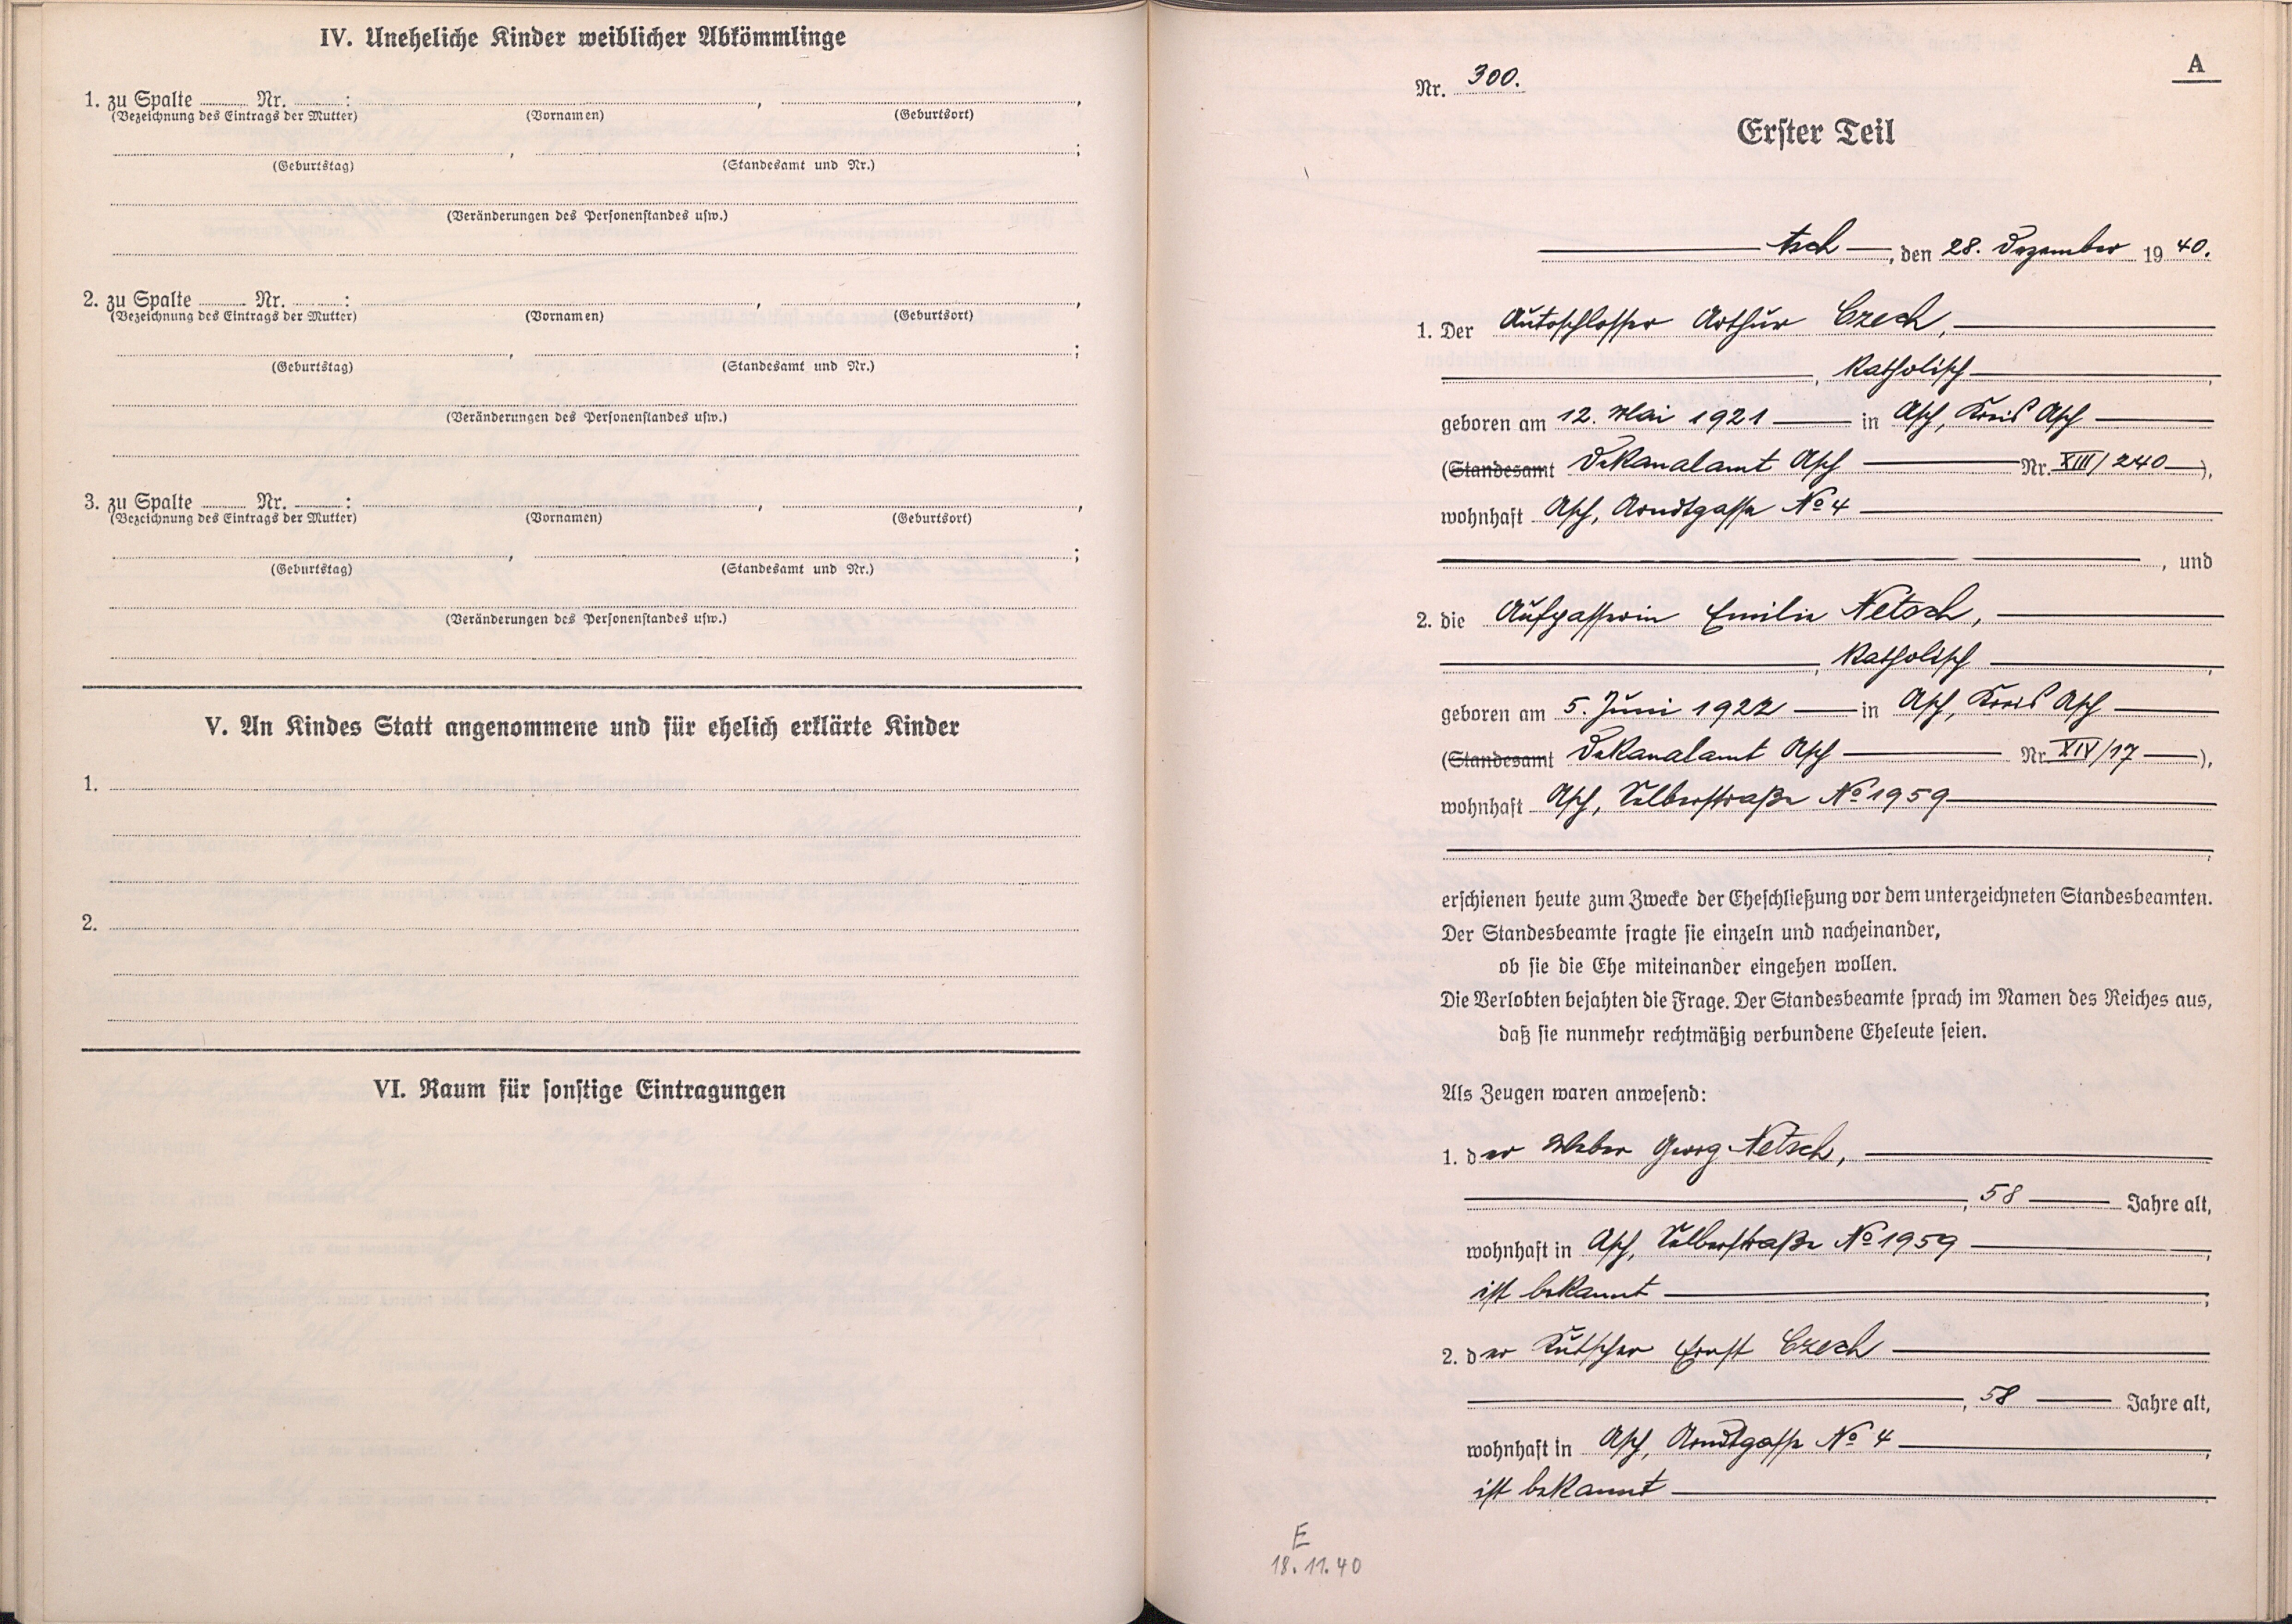 IV. Uneheliche Kinder weiblicher Abkömmlinge
1. zu Spalte Nr. : , ,
(Bezeichnung des Eintrags der Mutter) (Vornamen) (Geburtsort)
, ;
(Geburtstag) (Standesamt und Nr.)
(Veränderungen des Personenstandes usw.)
2. zu Spalte Nr. : , ,
(Bezeichnung des Eintrags der Mutter) (Vornamen) (Geburtsort)
, ;
(Geburtstag) (Standesamt und Nr.)
(Veränderungen des Personenstandes usw.)
3. zu Spalte Nr. : , ,
(Bezeichnung des Eintrags der Mutter) (Vornamen) (Geburtsort)
, ;
(Geburtstag) (Standesamt und Nr.)
(Veränderungen des Personenstandes usw.)
V. An Kindes Statt angenommene und für ehelich erklärte Kinder
1.
2.
VI. Raum für sonstige Eintragungen
A
Nr. 300.
Erster Teil
Asch, den 28. Dezember 1940.
1. Der Autoschlosser Arthur Czech,
, Katholisch ,
geboren am 12. Mai 1921 in Asch, Kreis Asch
(Standesamt Dekanalamt Asch Nr. XIII/240 ),
wohnhaft Asch, Arndtgasse No 4
, und
2. die Aufpasserin Emilie Netsch,
, Katholisch ,
geboren am 5. Juni 1922 in Asch, Kreis Asch
(Standesamt Dekanalamt Asch Nr. XIV/17 ),
wohnhaft Asch, Selberstraße No 1959
,
erschienen heute zum Zwecke der Eheschließung vor dem unterzeichneten Standesbeamten.
Der Standesbeamte fragte sie einzeln und nacheinander,
ob sie die Ehe miteinander eingehen wollen.
Die Verlobten bejahten die Frage. Der Standesbeamte sprach im Namen des Reiches aus,
daß sie nunmehr rechtmäßig verbundene Eheleute seien.
Als Zeugen waren anwesend:
1. der Weber Georg Netsch,
, 58 Jahre alt,
wohnhaft in Asch, Selberstraße No 1959 ,
ist bekannt ;
2. der Kutscher Ernst Czech
, 58 Jahre alt,
wohnhaft in Asch, Arndtgasse No 4 ,
ist bekannt
E
18.11.40